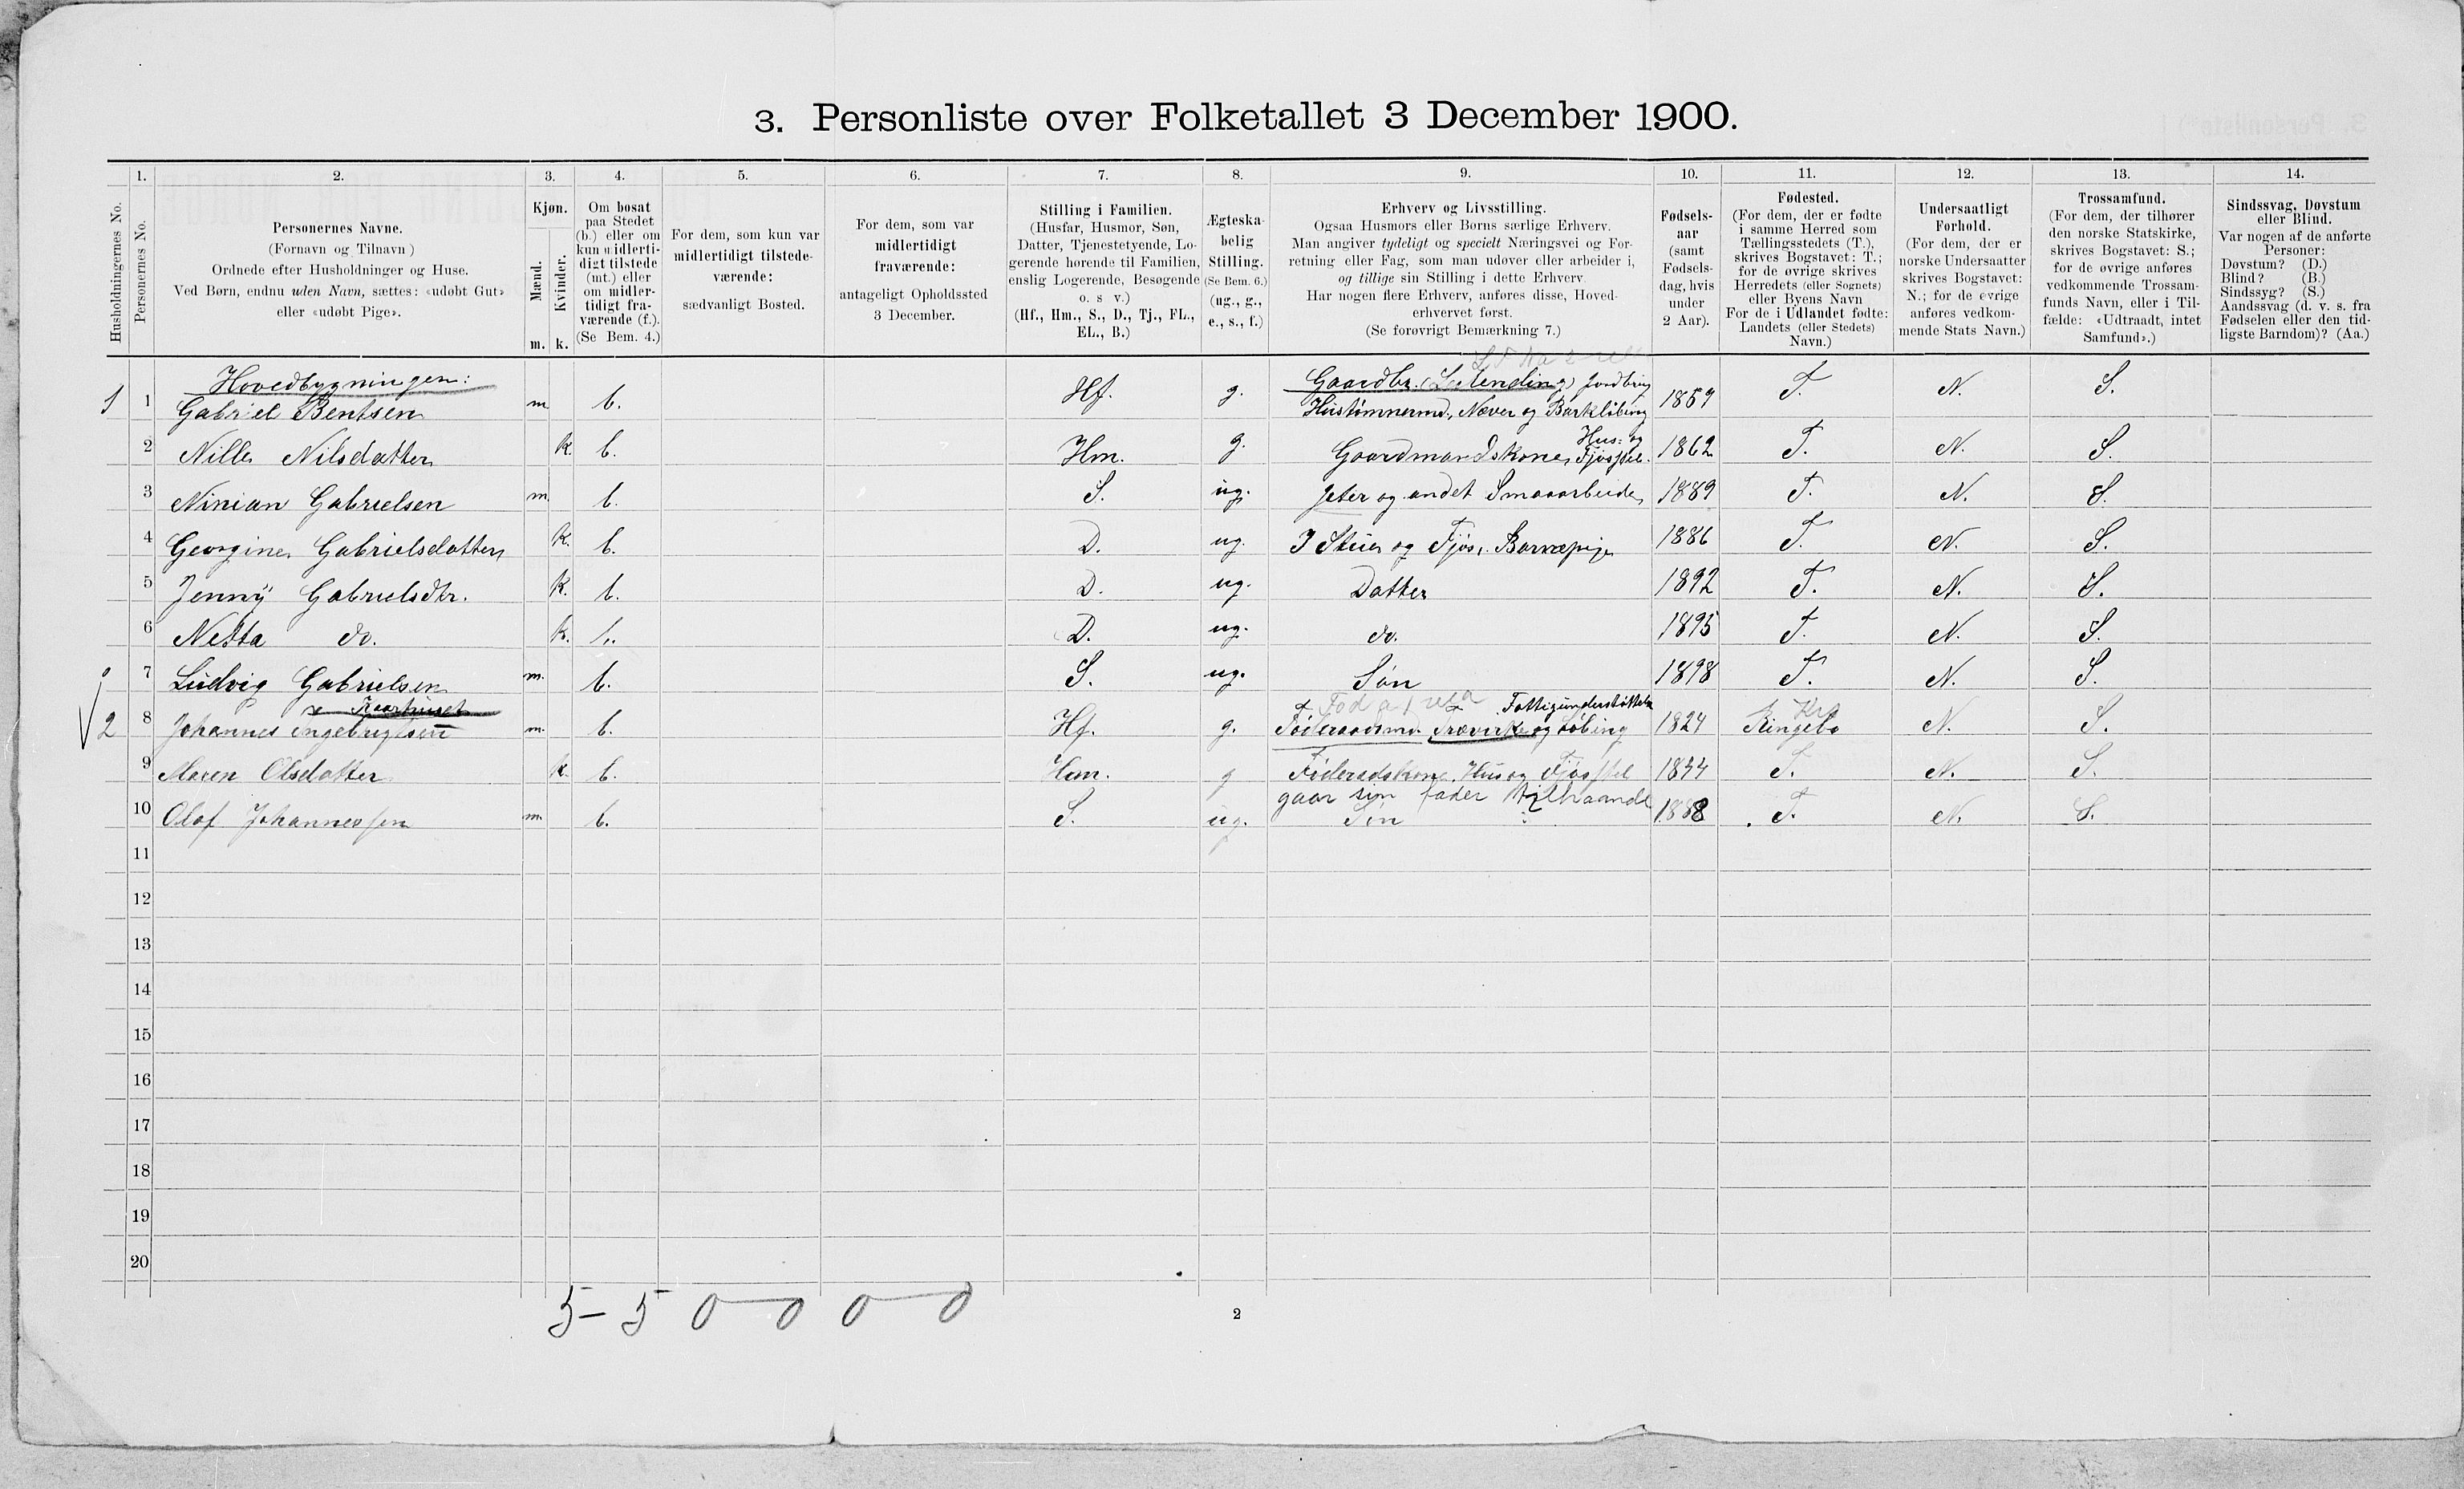 3. Personliste over Folketallet 3 December 1900.
1. 2. 3. 4. 5. 6. 7. 8. 9. 10. 11. 12. 13. 14.
Husholdningernes No.
Personernes No.
Personernes Navne.
(Fornavn og Tilnavn)
Ordnede efter Husholdninger og Huse.
Ved Børn, endnu uden Navn, sættes: «udøbt Gut»
eller «udøbt Pige».
Kjøn.
Mænd.
Kvinder.
m. k.
Om bosat
paa Stedet
(b.) eller om
kun midlerti-
digt tilstede
(mt.) eller
om midler-
tidigt fra-
værende (f.).
(Se Bem. 4.)
For dem, som kun var
midlertidigt tilstede-
værende:
sædvanligt Bosted.
For dem, som var
midlertidigt
fraværende:
antageligt Opholdssted
3 December.
Stilling i Familien.
(Husfar, Husmor, Søn,
Datter, Tjenestetyende, Lo-
gerende hørende til Familien,
enslig Logerende, Besøgende
o. s v.)
(Hf., Hm., S., D., Tj., FL.,
EL., B.)
Ægteska-
belig
Stilling.
(Se Bem. 6.)
(ug., g.,
e., s., f.)
Erhverv og Livsstilling.
Ogsaa Husmors eller Børns særlige Erhverv.
Man angiver tydeligt og specielt Næringsvei og For-
retning eller Fag, som man udøver eller arbeider i,
og tillige sin Stilling i dette Erhverv.
Har nogen flere Erhverv, anføres disse, Hoved-
erhvervet først.
(Se forøvrigt Bemærkning 7.)
Fødsels-
aar
(samt
Fødsels-
dag, hvis
under
2 Aar).
Fødested.
(For dem, der er fødte
i samme Herred som
Tællingsstedets (T.),
skrives Bogstavet: T.;
for de øvrige skrives
Herredets (eller Sognets)
eller Byens Navn
For de i Udlandet fødte:
Landets (eller Stedets)
Navn.)
Undersaatligt
Forhold.
(For dem, der er
norske Undersaatter
skrives Bogstavet:
N.; for de øvrige
anføres vedkom-
mende Stats Navn.)
Trossamfund.
(For dem, der tilhører
den norske Statskirke,
skrives Bogstavet: S.;
for de øvrige anføres
vedkommende Trossam-
funds Navn, eller i Til-
fælde: «Udtraadt, intet
Samfund».)
Sindssvag, Døvstum
eller Blind.
Var nogen af de anførte
Personer:
Døvstum? (D.)
Blind? (B.)
Sindssyg? (S.)
Aandssvag (d. v. s. fra
Fødselen eller den tid-
ligste Barndom)? (Aa.)
Hovedbygningen:
Gaardbr. (Leilending) Jordbrug
1 1 Gabriel Bentsen m b. Hf. g. Hustømmermd., Næver og Barkløbing 1859 T. N. S.
Hus- og
2 Nille Nilsdatter k. b. Hm. g. Gaardmandskone, Fjøsstel. 1862 T. N. S.
3 Ninian Gabrielsen m. b. S. ug. Jeter og andet Smaaarbeide 1889 T. N. S.
4 Georgine Gabrielsdatter k. b. D. ug. I Stuen og Fjøs, Barnepige 1886 T. N. S.
5 Jenny Gabrielsdtr. k. b. D. ug. Datter 1892 T. N. S.
6 Netta do. k. b. D. ug. do. 1895 T. N. S.
7 Ludvig Gabrielsen m. b. S. ug. Søn 1898 T. N. S.
Kaarhuset
Fattigunderstøttet
2 8 Johannes Ingebrigtsen m. b. Hf. g. Føderaadsmd. Trævirke og Løbing 1824 Ringebo N. S.
9 Maren Olsdatter k. b. Hm. g Føderadskone, Hus og Fjøsstel 1844 T. N. S.
gaar sin fader tilhaande
10 Olaf Johannessen m. b. S. ug. Søn 1888 T. N. S.
11
12
13
14
15
16
17
18
19
20
5 - 5 0 0 0 0
2